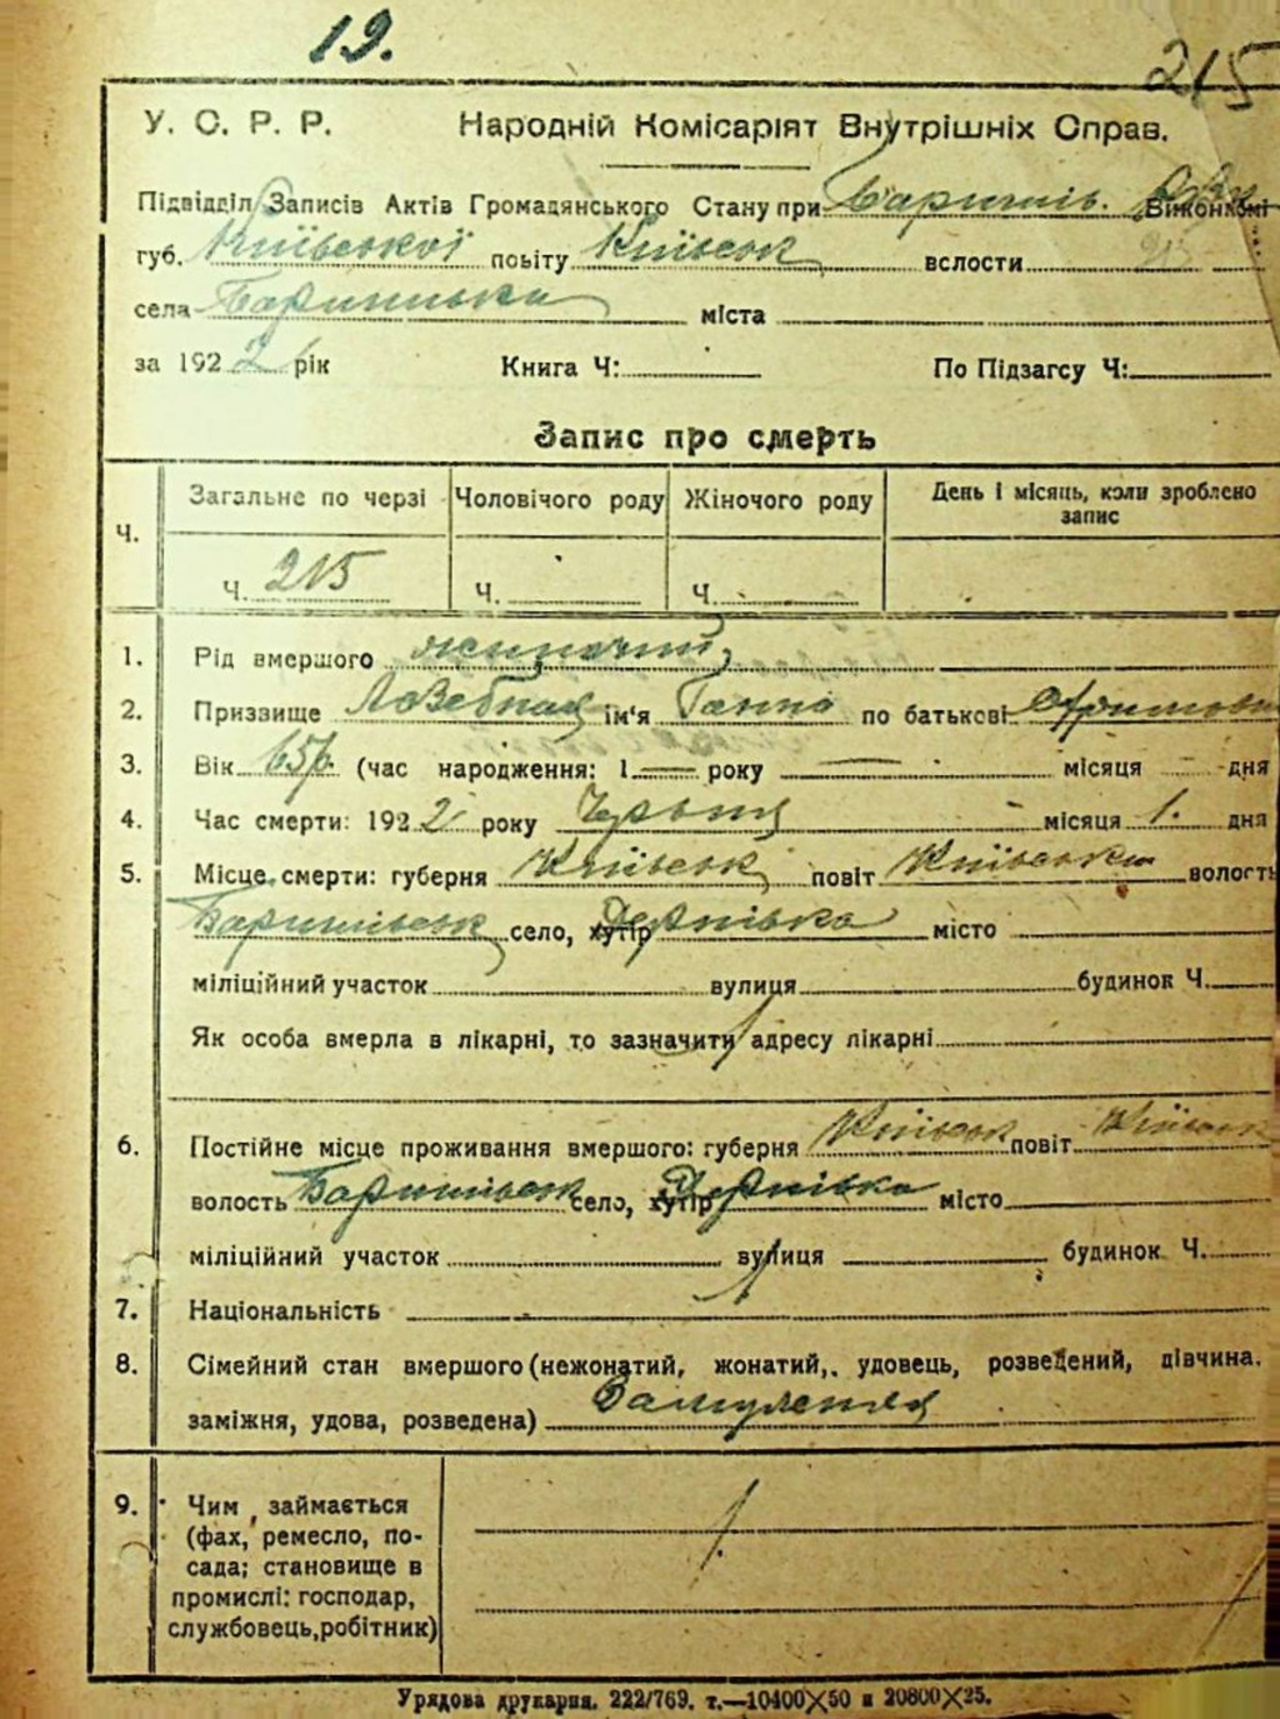 19.
215
У. С. Р. Р. Народній Комісаріят Внутрішніх Справ.
Підвідділ Записів Актів Громадянського Стану при Баришів. Виконкомі
губ. Київської повіту Київськ волости
села Баришівка міста
за 1922 рік Книга Ч: По Підзагсу Ч:
Запис про смерть
Ч. Загальне по черзі Чоловічого роду Жіночого роду День і місяць, коли зроблено
запис
Ч. 215 Ч. Ч.
1. Рід вмершого жиночий
2. Призвище ім'я Ганна по батькові
3. Вік 65р. (час народження: 1 — року — місяця дня
4. Час смерти: 1922 року місяця 1. дня
5. Місце смерти: губерня Київськ повіт Київськ волость
Баришівськ село, хутір місто
міліційний участок вулиця будинок Ч.
Як особа вмерла в лікарні, то зазначити адресу лікарні
6. Постійне місце проживання вмершого: губерня Київськ повіт Київськ
волость Баришівськ село, хутір місто
міліційний участок вулиця будинок Ч.
7. Національність
8. Сімейний стан вмершого (нежонатий, жонатий, удовець, розведений, дівчина.
заміжня, удова, розведена)
9. Чим займається
(фах, ремесло, по-
сада; становище в
промислі: господар,
службовець, робітник)
Урядова друкарня. 222/769. т.—10400×50 и 20800×25.